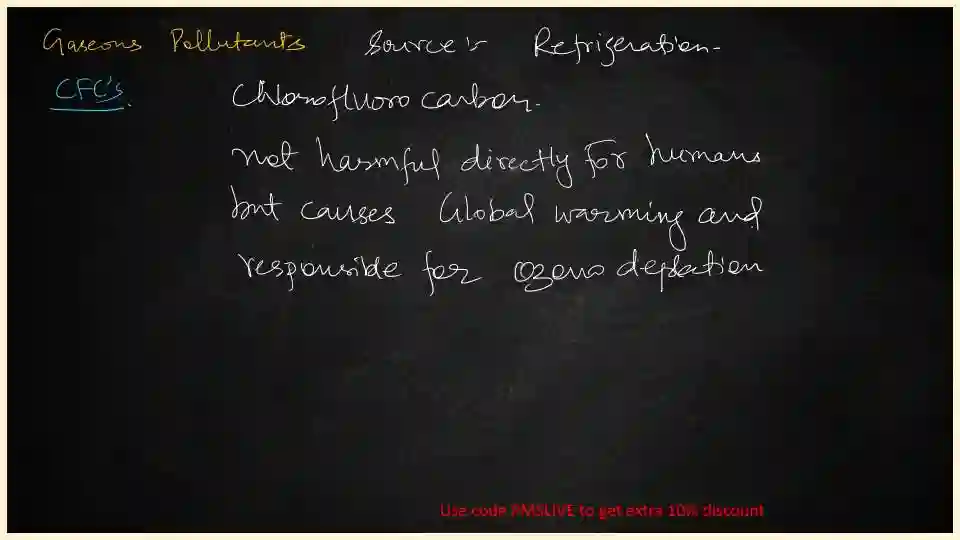 Gaseous Pollutants Source:- Refrigeration-
CFC's. Chlorofluoro carbon.
not harmful directly for humans
but causes Global warming and
responsible for ozone depletion
Use code AMSLIVE to get extra 10% discount